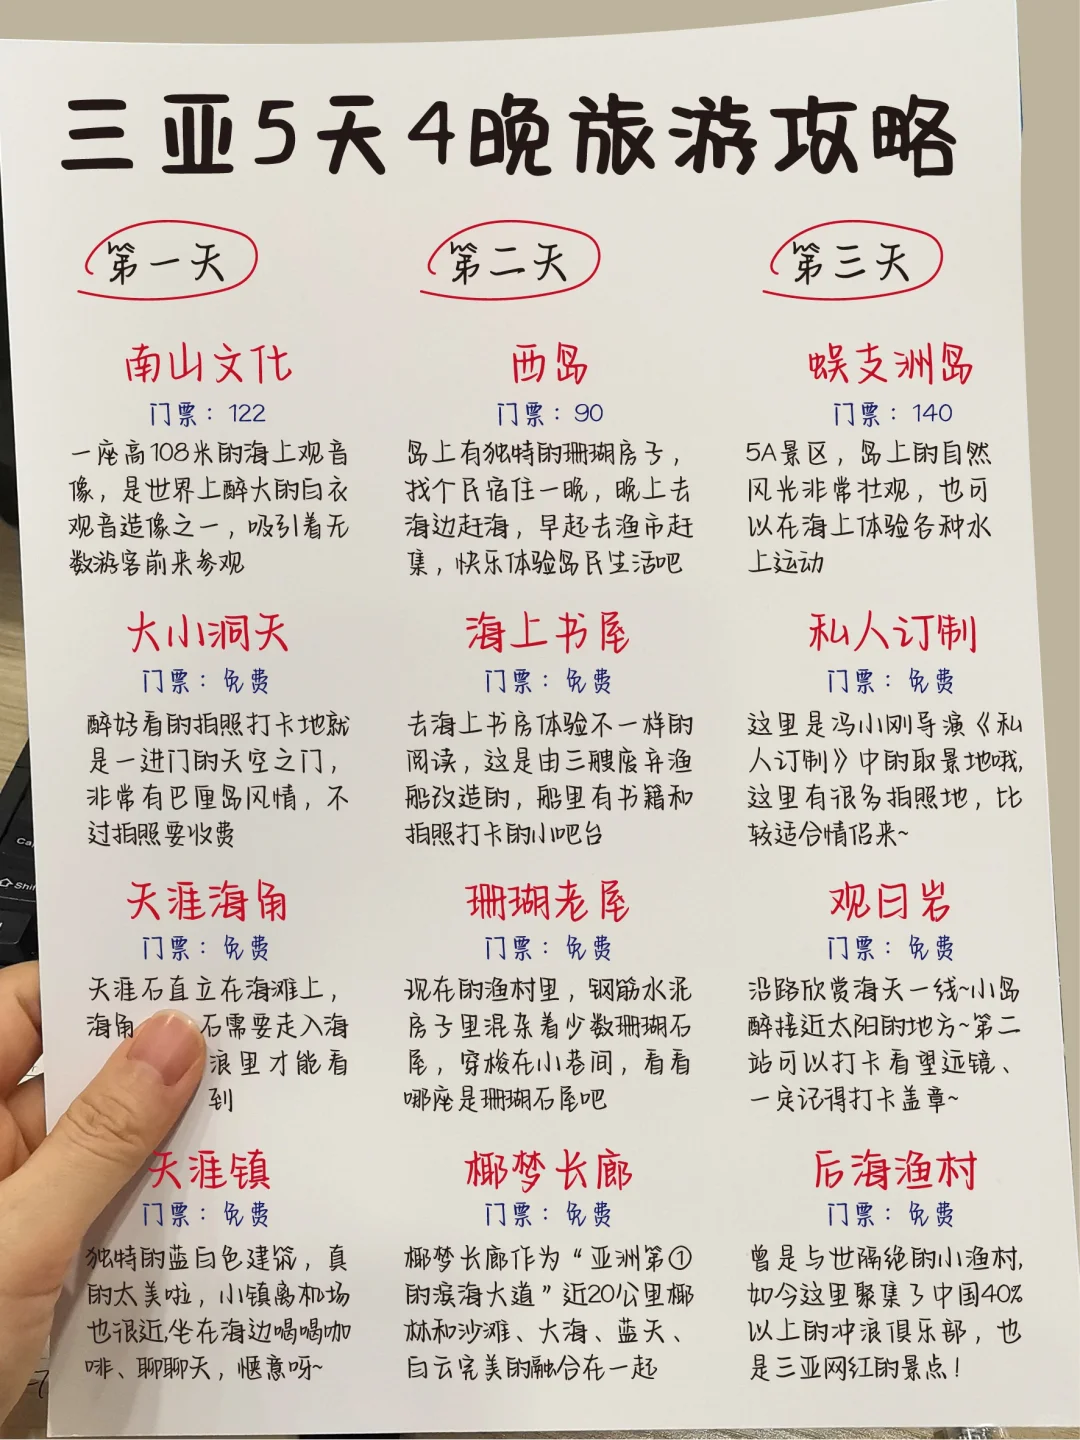 三亚5天4晚旅游攻略
第一天
南山文化
门票：122
一座高108米的海上观音
像，是世界上醉大的白衣
观音造像之一，吸引着无
数游客前来参观
大小洞天
门票：免费
醉好看的拍照打卡地就
是一进门的天空之门，
非常有巴厘岛风情，不
过拍照要收费
天涯海角
门票：免费
天涯石直立在海滩上，
海角 石需要走入海
浪里才能看
到
天涯镇
门票：免费
独特的蓝白色建筑，真
的太美啦，小镇离机场
也很近,坐在海边喝喝咖
啡、聊聊天，惬意呀~
第二天
西岛
门票：90
岛上有独特的珊瑚房子，
找个民宿住一晚，晚上去
海边赶海，早起去渔市赶
集，快乐体验岛民生活吧
海上书屋
门票：免费
去海上书房体验不一样的
阅读，这是由三艘废弃渔
船改造的，船里有书籍和
拍照打卡的小吧台
珊瑚老屋
门票：免费
现在的渔村里，钢筋水泥
房子里混杂着少数珊瑚石
屋，穿梭在小巷间，看看
哪座是珊瑚石屋吧
椰梦长廊
门票：免费
椰梦长廊作为“亚洲第①
的滨海大道”近20公里椰
林和沙滩、大海、蓝天、
白云完美的融合在一起
第三天
蜈支洲岛
门票：140
5A景区，岛上的自然
风光非常壮观，也可
以在海上体验各种水
上运动
私人订制
门票：免费
这里是冯小刚导演《私
人订制》中的取景地哦,
这里有很多拍照地，比
较适合情侣来~
观日岩
门票：免费
沿路欣赏海天一线~小岛
醉接近太阳的地方~第二
站可以打卡看望远镜、
一定记得打卡盖章~
后海渔村
门票：免费
曾是与世隔绝的小渔村,
如今这里聚集了中国40%
以上的冲浪俱乐部，也
是三亚网红的景点！